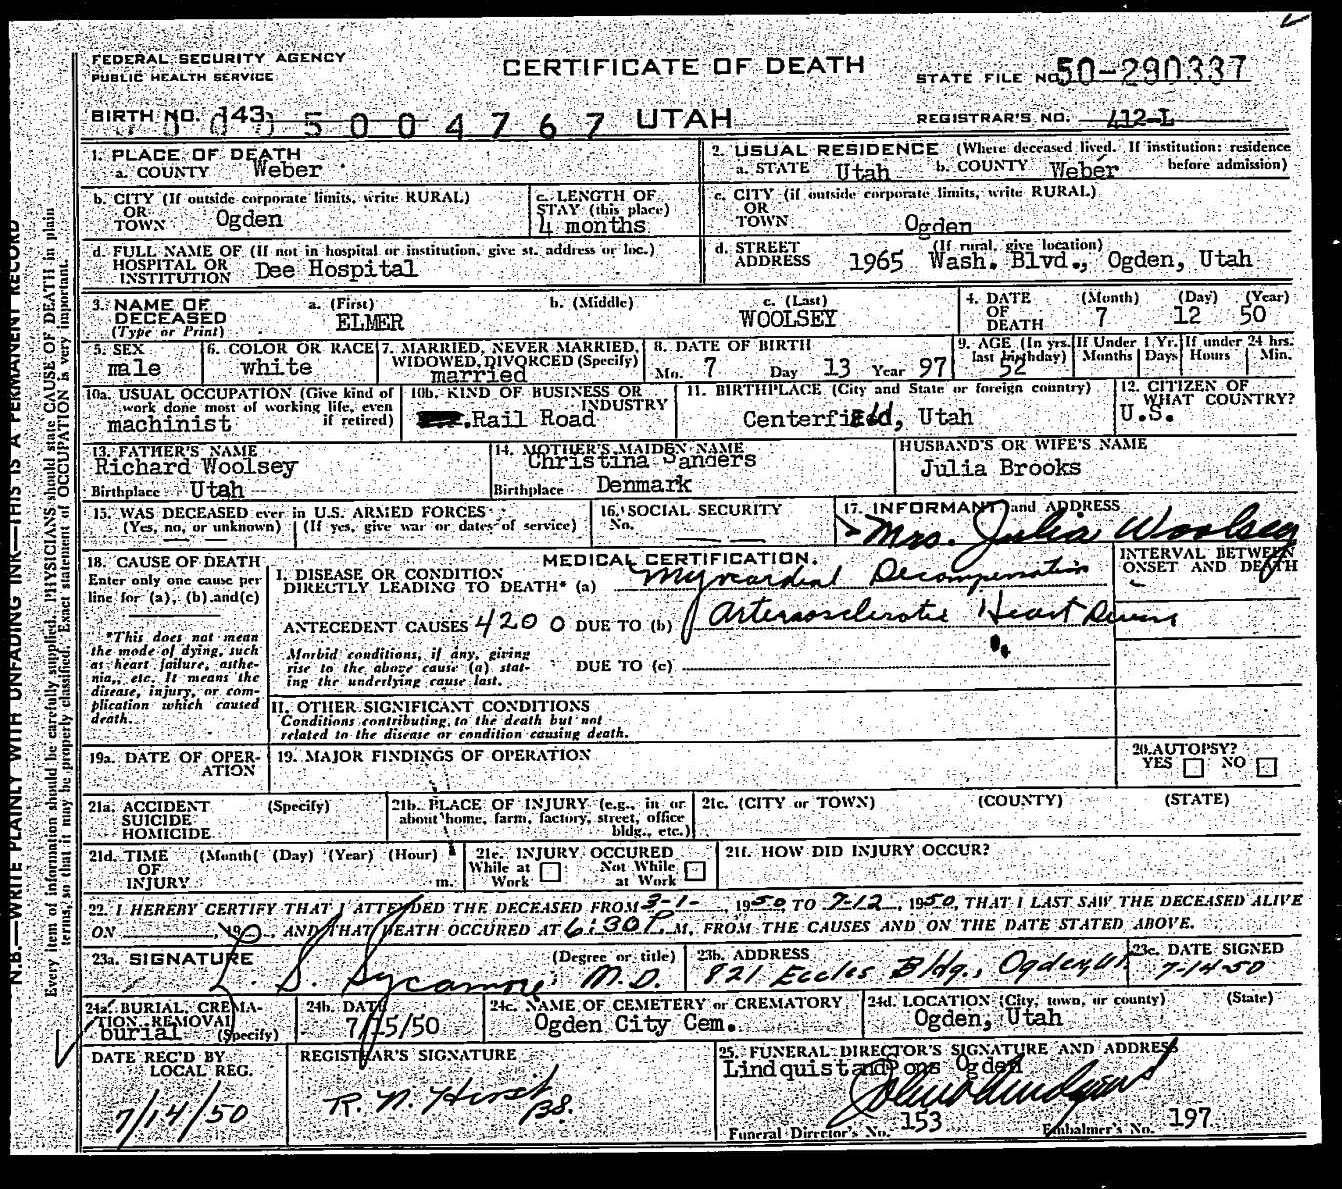 FEDERAL SECURITY AGENCY
PUBLIC HEALTH SERVICE
CERTIFICATE OF DEATH
STATE FILE NO. 50-290337
BIRTH NO. 143
5 0 0 4 7 6 7
UTAH
REGISTRAR'S NO. 412-L
1. PLACE OF DEATH
a. COUNTY Weber
2. USUAL RESIDENCE (Where deceased lived. If institution: residence before admission)
a. STATE Utah b. COUNTY Weber
b. CITY (If outside corporate limits, write RURAL)
OR
TOWN Ogden
c. LENGTH OF
STAY (this place)
4 months
c. CITY (if outside corporate limits, write RURAL)
OR
TOWN Ogden
d. FULL NAME OF (If not in hospital or institution, give st. address or loc.)
HOSPITAL OR
INSTITUTION Dee Hospital
d. STREET (If rural, give location)
ADDRESS 1965 Wash. Blvd., Ogden, Utah
3. NAME OF
DECEASED
(Type or Print)
a. (First) ELMER
b. (Middle)
c. (Last) WOOLSEY
4. DATE
OF
DEATH
(Month) (Day) (Year)
7 12 50
5. SEX
male
6. COLOR OR RACE
white
7. MARRIED, NEVER MARRIED,
WIDOWED, DIVORCED (Specify)
married
8. DATE OF BIRTH
Mo. 7 Day 13 Year 97
9. AGE (In yrs. last birthday)
52
If Under 1 Yr.
Months Days
If under 24 hrs.
Hours Min.
10a. USUAL OCCUPATION (Give kind of
work done most of working life, even
if retired)
machinist
10b. KIND OF BUSINESS OR
INDUSTRY
Rail Road
11. BIRTHPLACE (City and State or foreign country)
Centerfield, Utah
12. CITIZEN OF
WHAT COUNTRY?
U.S.
13. FATHER'S NAME
Richard Woolsey
Birthplace Utah
14. MOTHER'S MAIDEN NAME
Christina Sanders
Birthplace Denmark
HUSBAND'S OR WIFE'S NAME
Julia Brooks
15. WAS DECEASED ever in U.S. ARMED FORCES
(Yes, no, or unknown) (If yes, give war or dates of service)
16. SOCIAL SECURITY
No.
17. INFORMANT and ADDRESS
Mrs. Julia Woolsey
18. CAUSE OF DEATH
Enter only one cause per
line for (a), (b) and (c)
*This does not mean
the mode of dying, such
as heart failure, asthe-
nia, etc. It means the
disease, injury, or com-
plication which caused
death.
MEDICAL CERTIFICATION
INTERVAL BETWEEN
ONSET AND DEATH
I. DISEASE OR CONDITION
DIRECTLY LEADING TO DEATH* (a) Myocardial Decompensation
ANTECEDENT CAUSES 4200 DUE TO (b) Arteriosclerotic Heart Disease
Morbid conditions, if any, giving
rise to the above cause (a) stat-
ing the underlying cause last.
DUE TO (c)
II. OTHER SIGNIFICANT CONDITIONS
Conditions contributing to the death but not
related to the disease or condition causing death.
19a. DATE OF OPER-
ATION
19. MAJOR FINDINGS OF OPERATION
20. AUTOPSY?
YES NO
21a. ACCIDENT (Specify)
SUICIDE
HOMICIDE
21b. PLACE OF INJURY (e.g., in or
about home, farm, factory, street, office
bldg., etc.)
21c. (CITY or TOWN) (COUNTY) (STATE)
21d. TIME (Month) (Day) (Year) (Hour)
OF
INJURY m.
21e. INJURY OCCURED
While at Work
Not While at Work
21f. HOW DID INJURY OCCUR?
22. I HEREBY CERTIFY THAT I ATTENDED THE DECEASED FROM 3-1-, 1950 TO 7-12, 1950, THAT I LAST SAW THE DECEASED ALIVE
ON , 19 , AND THAT DEATH OCCURED AT 6:30 P. M, FROM THE CAUSES AND ON THE DATE STATED ABOVE.
23a. SIGNATURE (Degree or title)
L. S. Sycamore M.D.
23b. ADDRESS
821 Eccles Bldg., Ogden, Ut
23c. DATE SIGNED
7-14-50
24a. BURIAL, CREMA-
TION, REMOVAL
burial (Specify)
24b. DATE
7/15/50
24c. NAME OF CEMETERY OR CREMATORY
Ogden City Cem.
24d. LOCATION (City, town, or county) (State)
Ogden, Utah
DATE REC'D BY
LOCAL REG.
7/14/50
REGISTRAR'S SIGNATURE
R. N. Hirst
BS.
25. FUNERAL DIRECTOR'S SIGNATURE AND ADDRESS
Lindquist and Sons Ogden
Funeral Director's No. 153
Embalmer's No. 197
N.B.—WRITE PLAINLY WITH UNFADING INK—THIS IS A PERMANENT RECORD
Every item of information should be carefully supplied. PHYSICIANS should state CAUSE OF DEATH in plain
terms, so that it may be properly classified. Exact statement of OCCUPATION is very important.